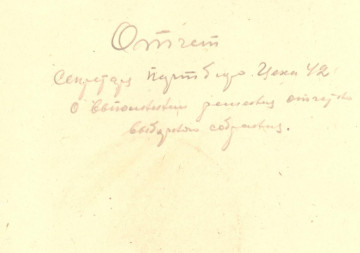 Отчет
Секретаря Партбюро Цеха 42
О выполнении решения отчетно
выборного собрания.